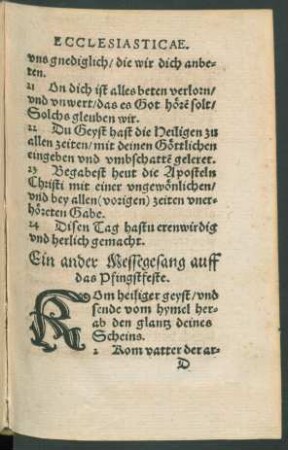 ECCLESIASTICAE.
vns gnediglich/die wir dich anbe-
ten.
21 On dich ist alles beten verlorn/
vnd vnwert/das es Got hörē solt/
Solchs gleuben wir.
22 Du Geyst hast die Heiligen zu
allen zeiten/mit deinen Göttlichen
eingeben vnd vmbschattē geleret.
23 Begabest heut die Aposteln
Christi mit einer vngewönlichen/
vnd bey allen (vorigen) zeiten vner-
hörzeten Gabe.
24 Disen Tag hastu erenwirdig
vnd herlich gemacht.
Ein ander Messegesang auff
das Pfingstfeste.
KOm heiliger geyst/vnd
sende vom hymel her-
ab den glantz deines
Scheins.
2 Kom vatter der ar-
D